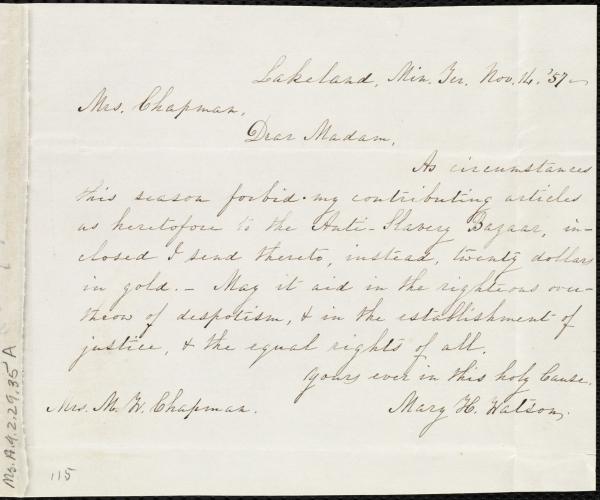 Lakeland, Min. Ter. Nov. 14. '57 –
Mrs. Chapman,
Dear Madam,
As circumstances
this season forbid my contributing articles
as heretofore to the Anti-Slavery Bazaar, in-
closed I send thereto, instead, twenty dollars
in gold. – May it aid in the righteous over-
throw of despotism, & in the establishment of
justice, & the equal rights of all.
Yours ever in this holy Cause,
Mrs. M. W. Chapman. Mary H. Watson.
115
Ms.A.9.2.29,35 A